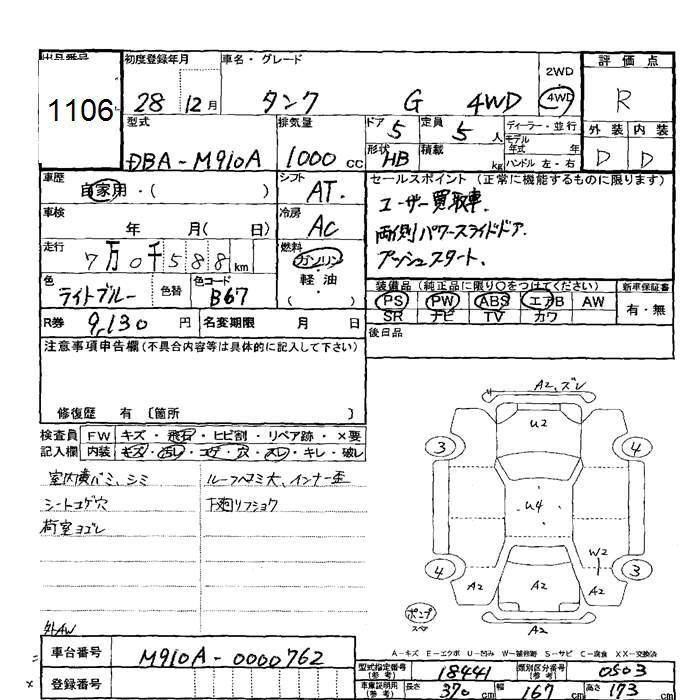 出品番号
1106
初度登録年月
28 12月
車名・グレード
タンク G 4WD
2WD
4WD
評価点
R
外装 内装
D D
型式
DBA-M910A
排気量
1000 cc
ドア 5
定員 5 人
形状 HB
積載 kg
ディーラー・並行
モデル
年式 年
ハンドル 左・右
車歴
自家用・( )
シフト
AT.
セールスポイント (正常に機能するものに限ります)
ユーザー買取車、
両側パワースライドドア、
プッシュスタート、
車検
年 月( 日)
冷房
AC
走行
7万0千588km
燃料
ガソリン
軽油
( )
色
ライトブルー
色替
色コード
B67
装備品 (純正品に限り〇をつけてください)
PS PW ABS エアB AW
SR ナビ TV カワ
新車保証書
有・無
R券 9,130 円
名変期限 月 日
後日品
注意事項申告欄(不具合内容等は具体的に記入して下さい)
修復歴 有 〔箇所 〕
検査員 FW キズ・飛石・ヒビ割・リペア跡・×要
記入欄 内装 キズ・汚レ・コゲ・穴・スレ・キレ・破レ
シートコゲ穴
荷室ヨゴレ
下廻リフショク
外AW
A2、ズレ
U2
3
4
U4
W2
4
3
A2
A2
A2
A2
ポンプ
スペア
A-キズ E-エクボ U-凹み W-補修跡 S-サビ C-腐食 XX-交換済
車台番号
M910A-0000762
登録番号
型式指定番号
(参考)
18441
類別区分番号
(参考)
0503
車庫証明用
(参考)
長さ 370 cm
幅 167 cm
高さ 173 cm